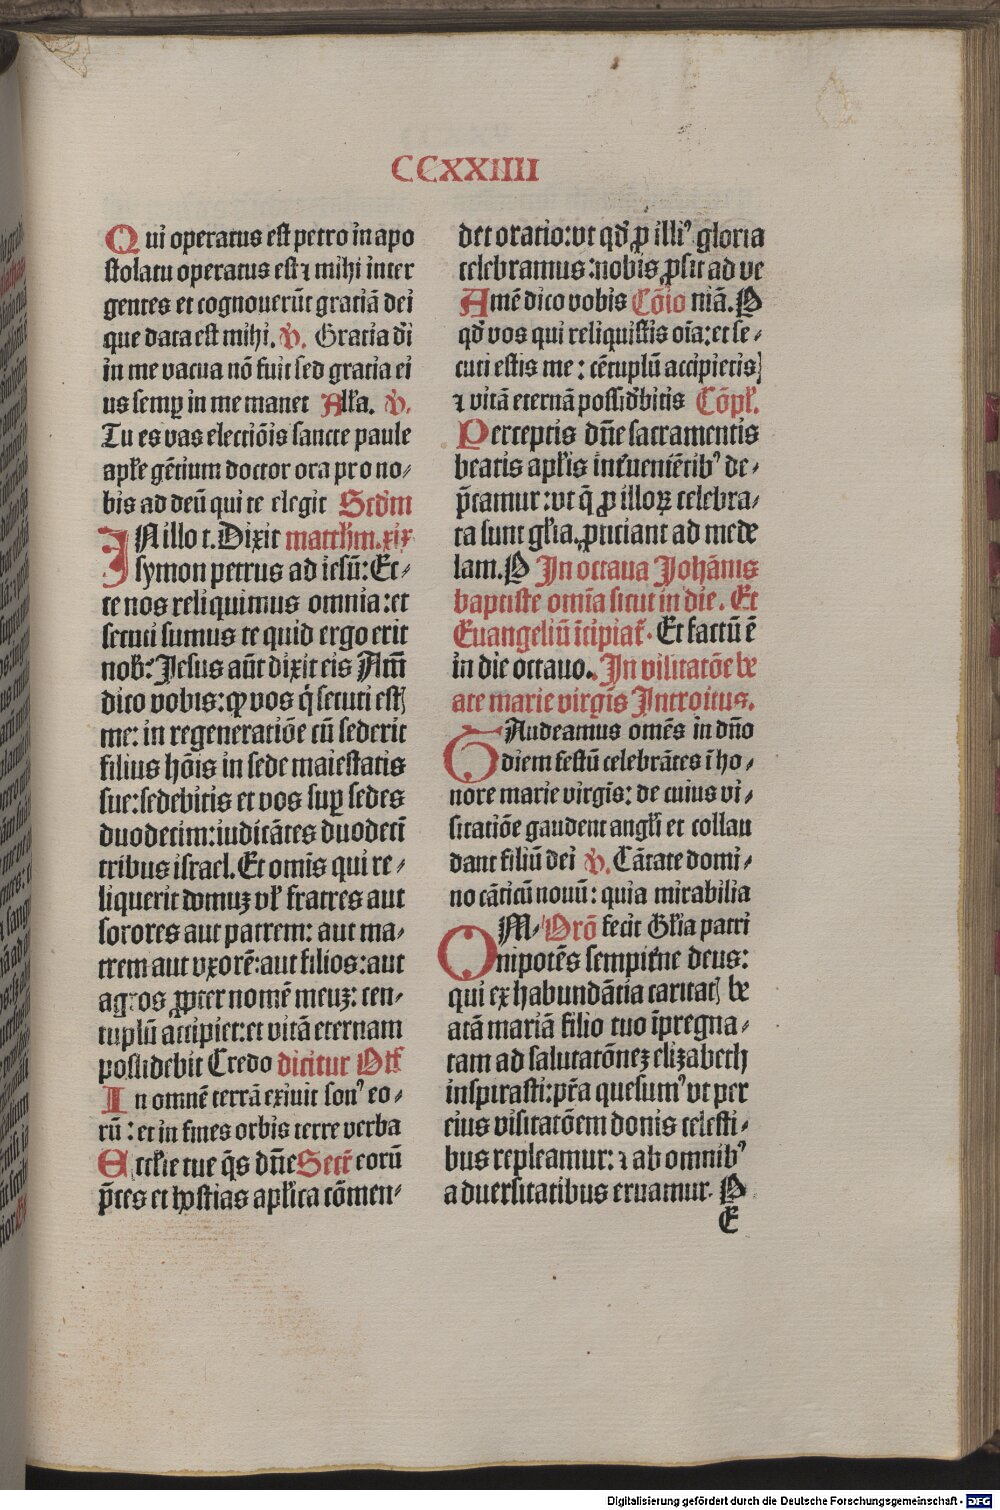 CCXXIIII
Qui operatus est petro in apo
stolatu operatus est ⁊ mihi inter
gentes et cognouerūt gratiā dei
que data est mihi. ℣. Gratia dī
in me vacua nō fuit sed gratia ei
us semꝑ in me manet Alľa. ℣.
Tu es vas electiōis sancte paule
apľe gētium doctor ora pro no-
bis ad deū qui te elegit Scđm
IN illo t. Dixit matthm. xix
symon petrus ad iesū: Ec-
ce nos reliquimus omnia: et
secuti sumus te quid ergo erit
nob? Jesus aūt dixit eis Am̄
dico vobis: ꝙ vos q̄ secuti estꝭ
me: in regeneratiōe cū sederit
filius hōis in sede maiestatis
sue: sedebitis et vos suꝑ sedes
duodecim: iudicātes duodecī
tribus israel. Et omīs qui re-
liquerit domuꝫ vľ fratres aut
sorores aut patrem: aut ma-
trem aut vxorē: aut filios: aut
agros ꝓpter nomē meuꝫ: cen-
tuplū accipiet: et vitā eternam
possidebit Credo dicitur Off
In omnē terrā exiuit sonꝰ eo-
rū: et in fines orbis terre verba
Eccľie tue q̄s dn̄e Secr̄ eorū
p̄ces et hostias apľica cōmen-
det oratio: vt qđ ꝓ illiꝰ gloria
celebramus: nobis ꝓsit ad ve
Amē dico vobis Cōīo niā. P
qđ vos qui reliquistis oīa: et se-
cuti estis me: cētuplū accipietis
⁊ vitā eternā possiđbitis Cōpľ.
Perceptis dn̄e sacramentis
beatis apľis interuenētibꝰ de-
p̄camur: vt q̄ ꝓ illoꝝ celebra-
ta sunt gľia. ꝓficiant ad mede
lam. P In octaua Johānis
baptiste omīa sicut in die. Et
Euangeliū īcipiat̄. Et factū ē
in die octauo. In visitatōe be
ate marie virgīs Introitus.
GAudeamus omēs in dn̄o
diem festū celebrātes ī ho-
nore marie virgīs: de cuius vi-
sitatiōe gaudent angľi et collau
dant filiū dei ℣. Cātate domi-
no cāticū nouū: quia mirabilia
OM- Orō fecit Gľia patri
nipotēs sempit̄ne deus:
qui ex habundātia caritatꝭ be
atā mariā filio tuo īpregna-
tam ad salutatōneꝫ elizabeth
inspirasti: p̄ta quesumꝰ vt per
eius visitatōem donis celesti-
bus repleamur: ⁊ ab omnibꝰ
aduersitatibus eruamur. P
E
Digitalisierung gefördert durch die Deutsche Forschungsgemeinschaft - DFG